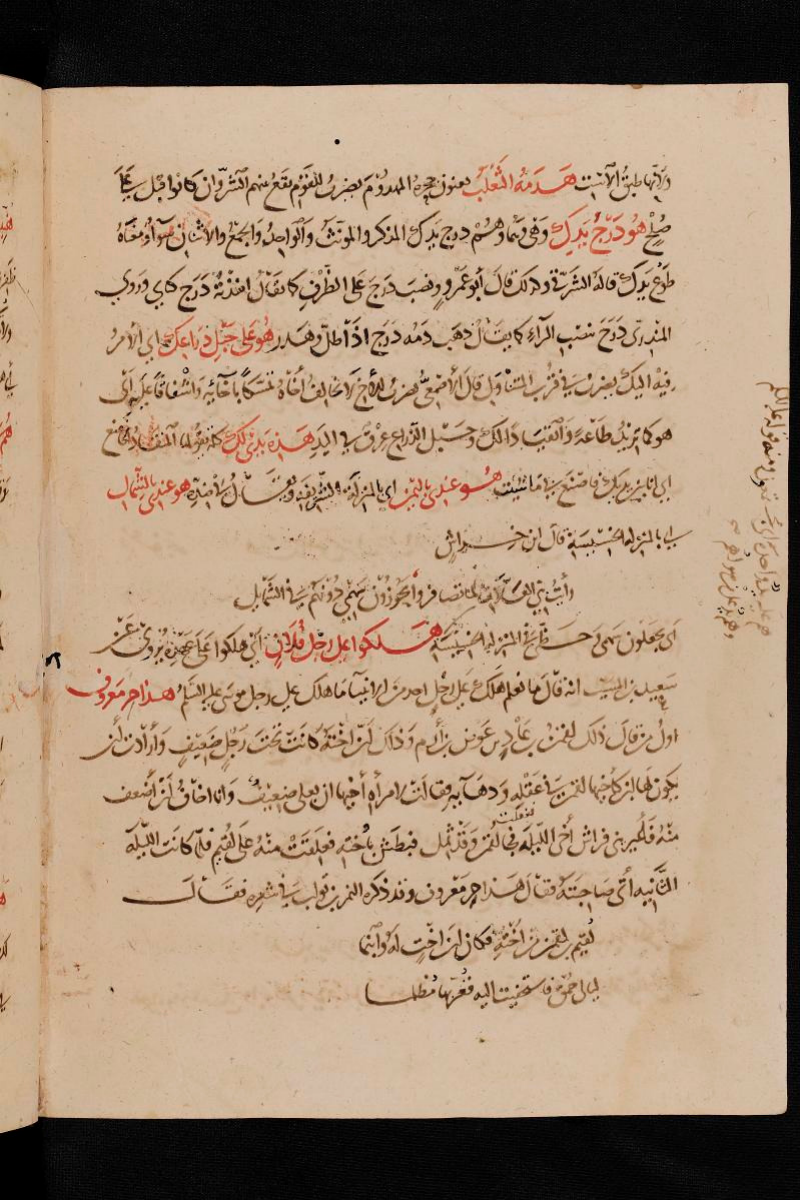 ولأنها طبق الأنيث هدمه الثعلب يعنون جحره المهدوم يضرب للقوم يقع بينهم الشر وإن كانوا قبل على
صلح هو درج يدك وهي وهما وهم درج يدك المذكر والمونث والواحد والجمع والاثنان سواء ومعناه
طوع يدك قاله الشرقي وكذلك قال أبو عمرو ونصب درج على الظرف كما يقال انفذته درج كتابي وروى
المنذري درج بنصب الراء كما يقال ذهب دمه درج اذا طل وهدر هو على حبل ذراعك اي الأمر
فيه اليك يضرب في قرب المتناول قال الأصمعي يضرب للأخ لا يخالف أخاه تمسكا بإخائه وإشفاقا عليه أي
هو كما تريد طاعة وانقيادا لك وحبل الذراع عرق في اليد هذه يدي لك كلمة يقولها المنقاد الخاضع
اي انا بين يديك فاصنع بي ما شئت هو عندي باليمين اي بالمنزلة الشريفة ويقال في ضده هو عندي بالشمال
اي بالمنزلة الخسيسة قال ابن خراش
رأيت بني العلات لما تضافروا يحوزون سهمي دونهم في الشمايل
اي يجعلون سهمي وحظي في المنزلة الخسيسة هلكوا على رجل فلان أي هلكوا على عهده يروى عن
سعيد بن المسيب انه قال ما نعلم هلك على رجل احد من الأنبياء ما هلك على رجل موسى عليه السلم هذا حر معروف
اول من قال ذلك لقمن بن عاد بن عوص بن أرم وذلك لأن اخته كانت تحت رجل ضعيف وأرادت أن
يكون لها ابن كأخيها لقمن في عقله ودهائه فقالت لامرأة أخيها ان بعلي ضعيف وانا اخاف لأن أضعف
منه فأعيريني فراش أخي الليلة ففعلت فجاء لقمن وقد ثمل فبطش بأخته فعلقت منه على لقيم فلما كانت الليلة
الثانيه أتى صاحبته فقال هذا حر معروف وقد ذكره النمر بن تولب في شعره فقال
لقيم بن لقمن من اخته فكان ابن اخت له وابنما
ليالي حمق فاستحصنت اليه فغر بها مظلما